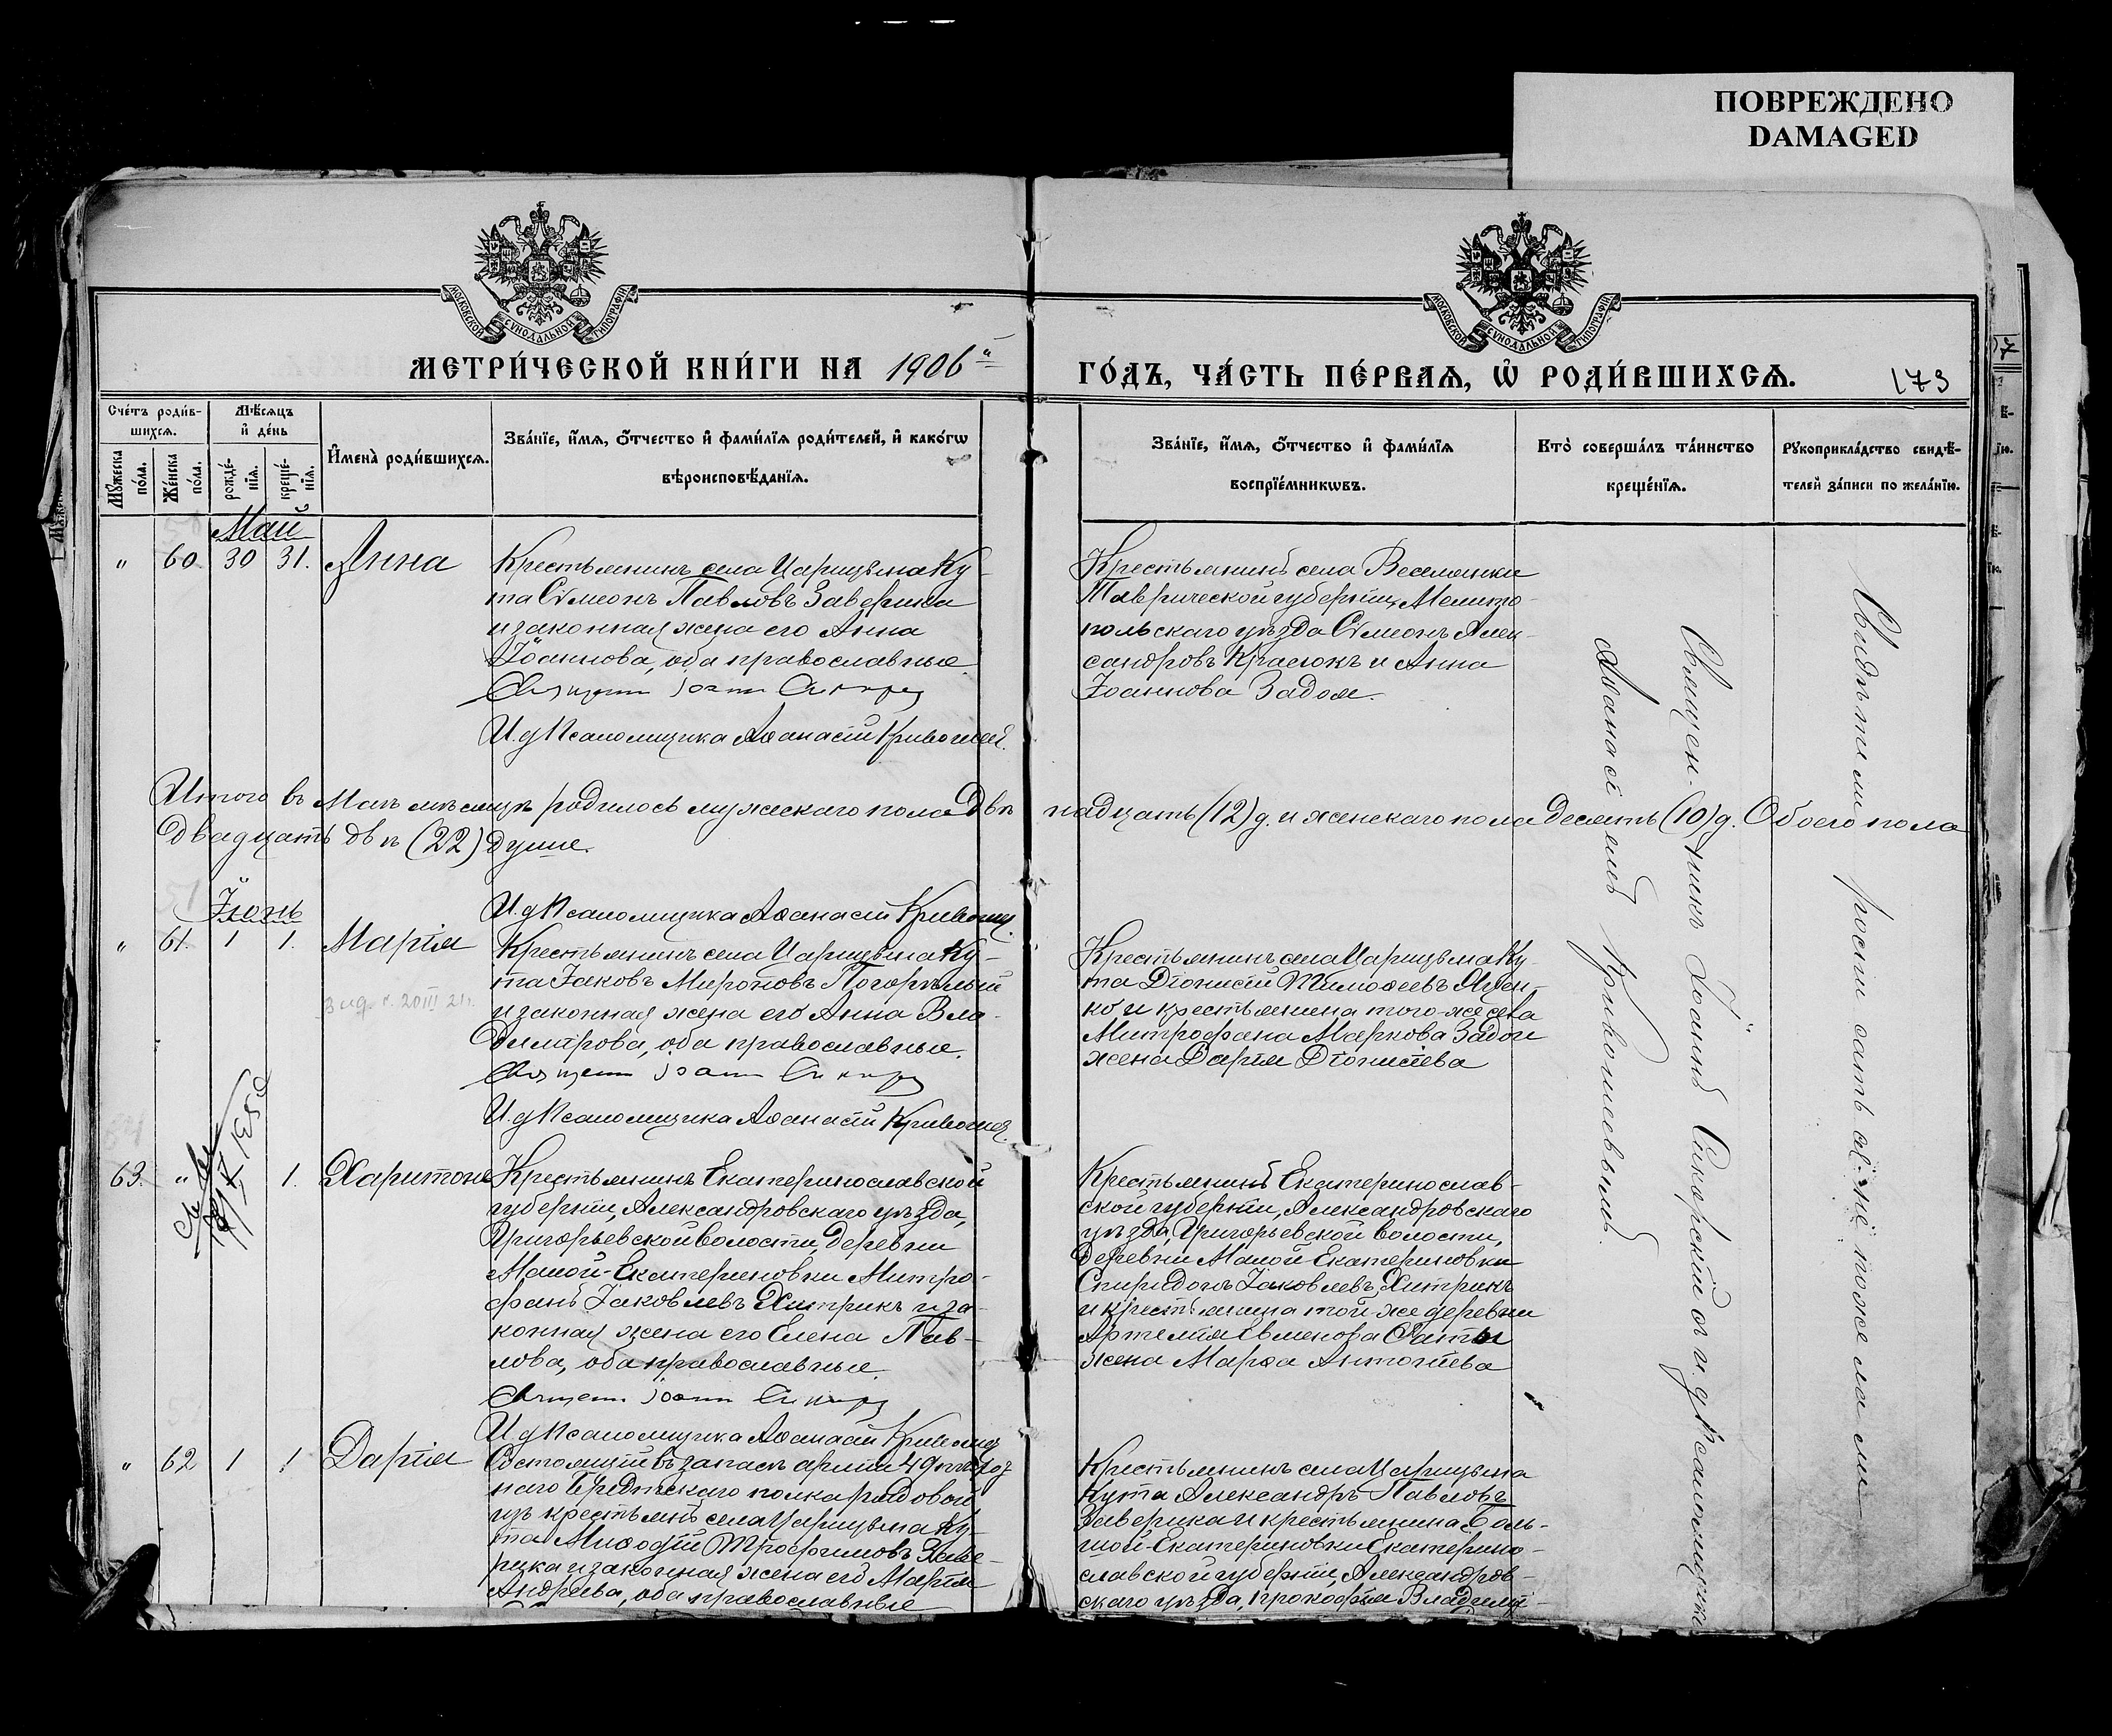 ПОВРЕЖДЕНО
DAMAGED
МОСКОВСКОЙ СѴНОДАЛЬНОЙ ТИПОГРАФІИ
МОСКОВСКОЙ СѴНОДАЛЬНОЙ ТИПОГРАФІИ
МЕТРИ́ЧЕСКОЙ КНИ́ГИ НА 1906 й
ГО́ДЪ, ЧА́СТЬ ПЕ́РВАЯ, Ѡ҆ РОДИ́ВШИХСЯ.
173
Сче́тъ роди́вшихся.
Мꙋ́жеска по́ла.
Же́нска по́ла.
Мѣ́сяцъ и҆ де́нь
рожде́нїя.
креще́нїя.
И҆мена̀ роди́вшихся.
Зва́нїе, и҆́мя, ѻ҆́тчество и҆ фами́лїя роди́телей, и҆ како́гѡ
вѣроисповѣ́данїя.
Зва́нїе, и҆́мя, ѻ҆́тчество и҆ фами́лїя
воспрїе́мникѡвъ.
Кто̀ соверша́лъ та́инство
креще́нїя.
Рꙋкоприкла́дство свидѣ́телей за́писи по жела́нїю.
Май
" 60. 30 31. Анна
Крестьянинъ села Царицына Ку-
та Сѵмеонъ Павловъ Заверика
и законная жена его Анна
Іоаннова, оба православные
Священ Іоанн Сикорс
И. д. Псаломщика Аѳанасій Кривошей.
Крестьянинъ села Веселянки
Таврической губерніи, Мелито-
польскаго уѣзда Сѵмеонъ Алек-
сандровъ Красюкъ и Анна
Іоаннова Задоя.
Итого въ Маѣ мѣсяцѣ родилось мужескаго пола двѣнадцать (12) д. и женскаго пола десять (10) д. Обоего пола
двадцать двѣ (22) душе.
И. д. Псаломщика Аѳанасій Кривошей.
Іюнь
" 61. 1 1. Марія
Крестьянинъ села Царицына Ку-
та Іаковъ Мироновъ Погорѣлый
и законная жена его Анна Вла-
димірова, оба православные.
Священ Іоанн Сикорс
И. д. Псаломщика Аѳанасій Кривошей.
Крестьянинъ села Царицына Ку-
та Діонисій Тимоѳеевъ Яцен-
ко и крестьянина того-же села
Митрофана Маркова Задои
жена Дарія Діонисіева
63. " 1. Харитонъ
Крестьянинъ Екатеринославской
губерніи, Александровскаго уѣзда,
Григорьевской волости, деревни
Малой-Екатериновки Митро-
фанъ Іаковлевъ Хитрикъ и за-
конная жена его Елена Пав-
лова, оба православные.
Священ Іоанн Сикорс
И. д. Псаломщика Аѳанасій Кривошей
Крестьянинъ Екатеринослав-
ской губерніи, Александровскаго
уѣзда, Григорьевской волости,
деревни Малой Екатериновки
Спиридонъ Іаковлевъ Хитрикъ
и крестьянина той-же деревни
Артемія Евменова
жена Марѳа Антоніева
" 62 1 1 Дарія
Состоящій въ запасѣ арміи 49 пѣхот
наго Брестскаго полка рядовой
изъ крестьянъ села Царицына Ку-
та Меѳодій Трофимовъ Заве-
рика и законная жена его Марія
Андреева, оба православные
Крестьянинъ села Царицына
Кута Александръ Павловъ
Заверика и крестьянина Боль-
шой-Екатериновки Екатерино-
славской губерніи, Александров-
скаго уѣзда, Прокофія Владимі-
Священникъ Іоаннъ Сикорскій съ и. д. Псаломщика
Аѳанасіемъ Кривошеевымъ.
Свидѣтели росписаться не пожелали